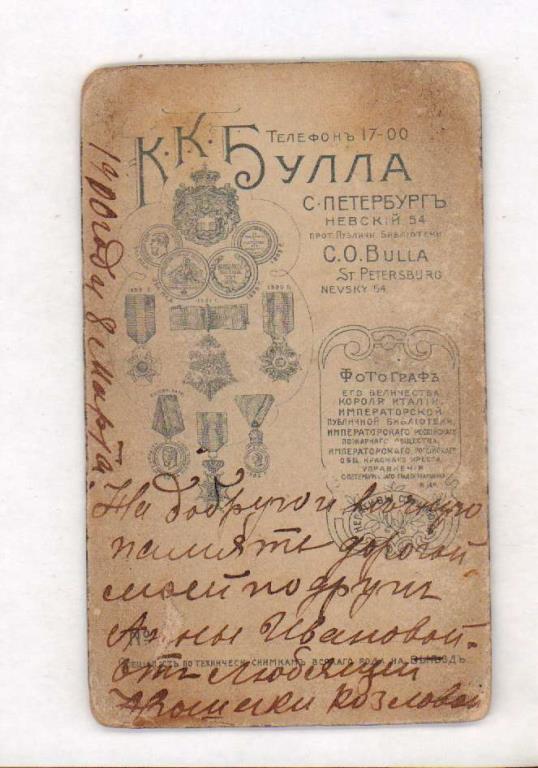 Телефонъ 17-00
К. К. Булла
С. Петербургъ
Невскій 54
прот. Публичн. Библіотеки
C. O. Bulla
St. Petersburg
Nevsky 54.
Фотографъ
Его Величества
Короля Италіи,
Императорской
Публичной Библіотеки,
Императорскаго Россійскаго
Пожарнаго Общества,
Императорскаго Россійскаго
Общ. Краснаго Креста,
Управленія
1900 году 8 марта.
На добрую и вечную
памяте дорогой
моей подруги
Анны Ивановой.
№
по техническ. снимкамъ всякаго рода на выѣздъ
отъ любящей
Козловой